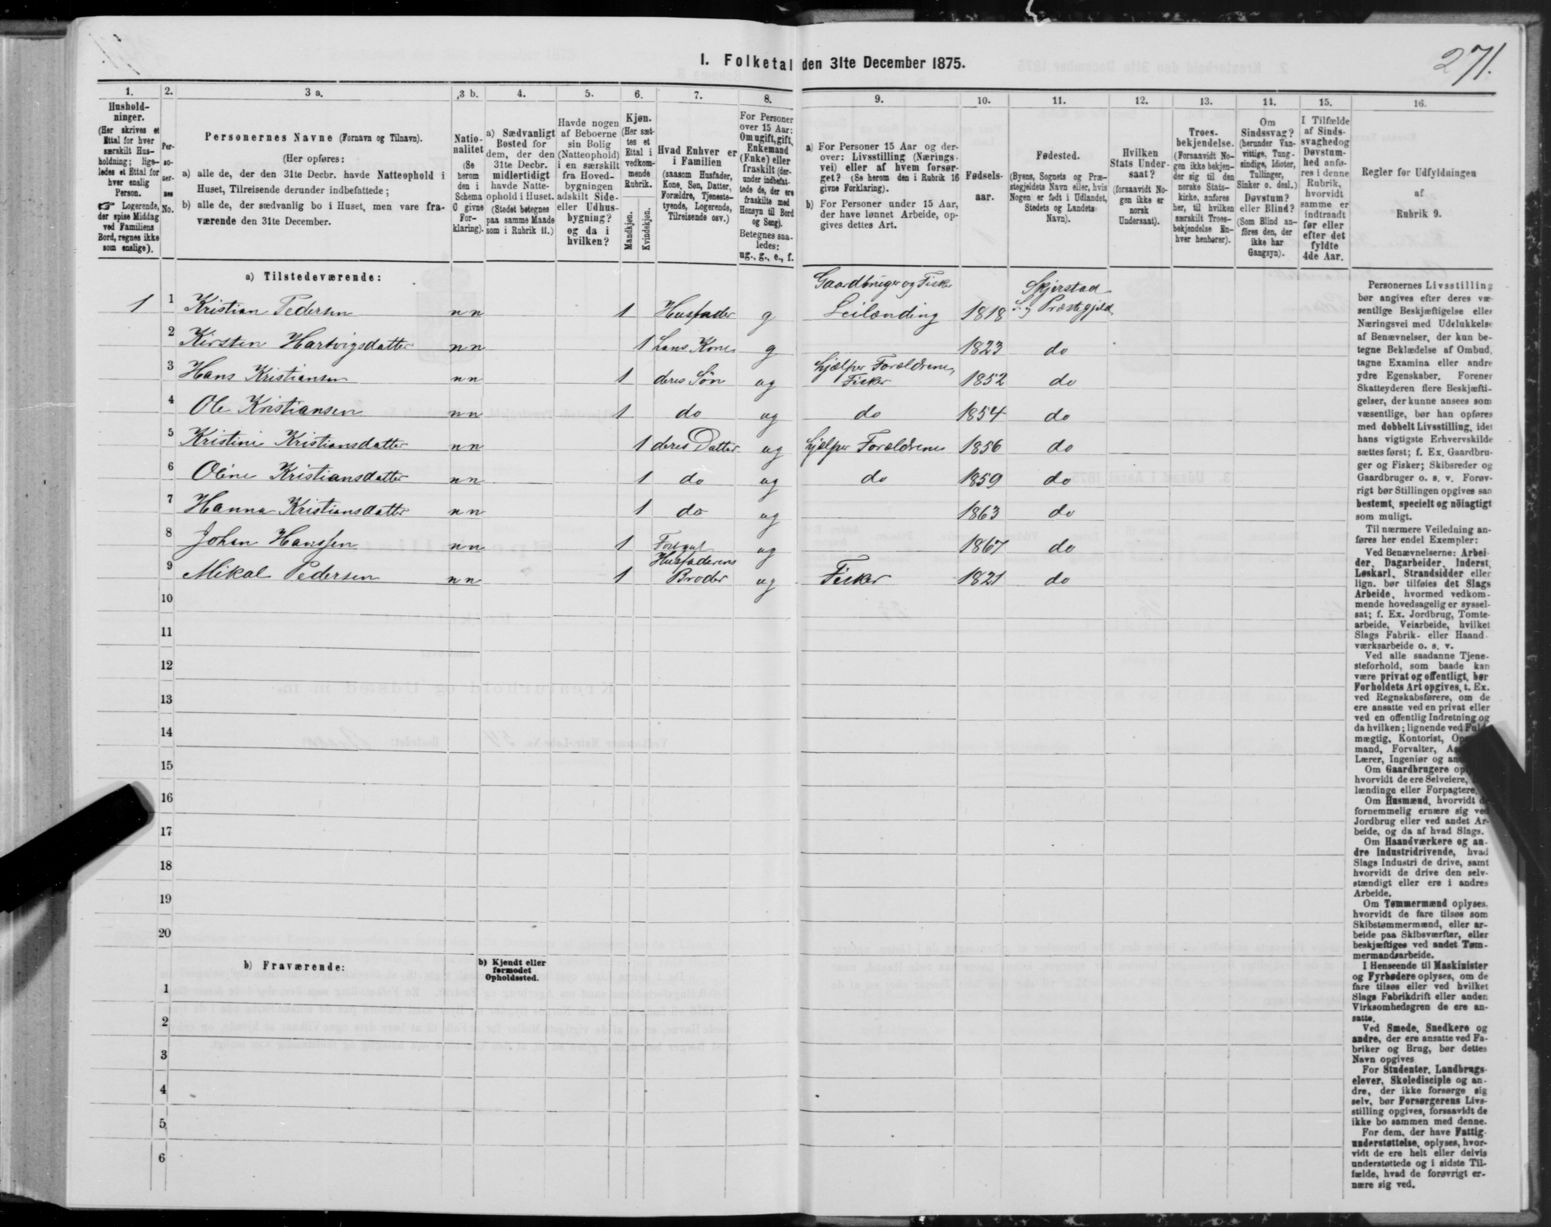 271.
I. Folketal den 31te December 1875.
1. 2. 3 a. 3 b. 4. 5. 6. 7. 8. 9. 10. 11. 12. 13. 14. 15. 16.
Hushold-
ninger.
(Her skrives et
Ettal for hver
særskilt Hus-
holdning; lige-
ledes et Ettal for
hver enslig
Person.
☞ Logerende,
der spise Middag
ved Familiens
Bord, regnes ikke
som enslige).
Per-
so-
ner-
nes
No.
Personernes Navne (Fornavn og Tilnavn).
(Her opføres:
a) alle de, der den 31te Decbr. havde Natteophold i
Huset, Tilreisende derunder indbefattede;
b) alle de, der sædvanlig bo i Huset, men vare fra-
værende den 31te December.
Natio-
nalitet
(Se
herom
den i
Schema
O givne
For-
klaring).
a) Sædvanligt
Bosted for
dem, der den
31te Decbr.
midlertidigt
havde Natte-
ophold i Huset.
(Stedet betegnes
paa samme Maade
som i Rubrik 11.)
Havde nogen
af Beboerne
sin Bolig
(Natteophold)
i en særskilt
fra Hoved-
bygningen
adskilt Side-
eller Udhus-
bygning?
og da i
hvilken?
Kjøn.
(Her sæt-
tes et
Ettal i
vedkom-
mende
Rubrik.
Mandkjøn.
Kvindekjøn.
Hvad Enhver er
i Familien
(saasom Husfader,
Kone, Søn, Datter,
Forældre, Tjeneste-
tyende, Logerende,
Tilreisende osv.)
For Personer
over 15 Aar:
Om ugift, gift,
Enkemand
(Enke) eller
fraskilt (der-
under indbefat-
tede de, der ere
fraskilte med
Hensyn til Bord
og Seng).
Betegnes saa-
ledes:
ug., g., e., f.
a) For Personer 15 Aar og der-
over: Livsstilling (Nærings-
vei) eller af hvem forsør-
get? (Se herom den i Rubrik 16
givne Forklaring).
b) For Personer under 15 Aar,
der have lønnet Arbeide, op-
gives dettes Art.
Fødsels-
aar.
Fødested.
(Byens, Sognets og Præ-
stegjeldets Navn eller, hvis
Nogen er født i Udlandet,
Stedets og Landets
Navn).
Hvilken
Stats Under-
saat?
(forsaavidt No-
gen ikke er
norsk
Undersaat).
Troes-
bekjendelse.
(Forsaavidt No-
gen ikke bekjen-
der sig til den
norske Stats-
kirke, anføres
her, til hvilken
særskilt Troes-
bekjendelse En-
hver henhører).
Om
Sindssvag?
(herunder Van-
vittige, Tung-
sindige, Idioter,
Tullinger,
Sinker o. desl.)
Døvstum?
eller Blind?
(Som Blind an-
føres den, der
ikke har
Gangsyn).
I Tilfælde
af Sinds-
svaghed og
Døvstum-
hed anfø-
res i denne
Rubrik,
hvorvidt
samme er
indtraadt
før eller
efter det
fyldte
4de Aar.
Regler for Udfyldningen
af
Rubrik 9.
a) Tilstedeværende:
Gaardbruger og Fisker Skjerstad
1 1 Kristian Pedersen nn 1 Husfader g Leilænding 1818 S. og Præstegjeld
2 Kirsten Hartvigsdatter nn 1 hans Kone g 1823 do
3 Hans Kristiansen nn 1 deres Søn ug hjælper Forældrene, Fisker 1852 do
4 Ole Kristiansen nn 1 do ug do 1854 do
5 Kristine Kristiansdatter nn 1 deres Datter ug hjælper Forældrene 1856 do
6 Oline Kristiansdatter nn 1 do ug do 1859 do
7 Hanna Kristiansdatter nn 1 do ug 1863 do
8 Johan Hanssen nn 1 ug 1867 do
9 Mikal Pedersen nn 1 Husfaderens Broder ug Fisker 1821 do
10
11
12
13
14
15
16
17
18
19
20
b) Fraværende:
b) Kjendt eller
formodet
Opholdssted.
1
2
3
4
5
6
Personernes Livsstilling
bør angives efter deres væ-
sentlige Beskjæftigelse eller
Næringsvei med Udelukkelse
af Benævnelser, der kun be-
tegne Beklædelse af Ombud,
tagne Examina eller andre
ydre Egenskaber. Forener
Skatteyderen flere Beskjæfti-
gelser, der kunne ansees som
væsentlige, bør han opføres
med dobbelt Livsstilling, idet
hans vigtigste Erhvervskilde
sættes først; f. Ex. Gaardbru-
ger og Fisker; Skibsreder og
Gaardbruger o. s. v. Forøv-
rigt bør Stillingen opgives saa
bestemt, specielt og nøiagtigt
som muligt.
Til nærmere Veiledning an-
føres her endel Exempler:
Ved Benævnelserne: Arbei-
der, Dagarbeider, Inderst,
Løskarl, Strandsidder eller
lign. bør tilføies det Slags
Arbeide, hvormed vedkom-
mende hovedsagelig er syssel-
sat; f. Ex. Jordbrug, Tomte-
arbeide, Veiarbeide, hvilket
Slags Fabrik- eller Haand-
værksarbeide o. s. v.
Ved alle saadanne Tjene-
steforhold, som baade kan
være privat og offentligt, bør
Forholdets Art opgives, t. Ex.
ved Regnskabsførere, om de
ere ansatte ved en privat eller
ved en offentlig Indretning og
da hvilken; lignende ved Fuld-
mægtig, Kontorist,
mand, Forvalter,
Lærer, Ingeniør og
Om Gaardbrugere
hvorvidt de ere Selveiere,
lændinge eller Forpagtere.
Om Husmænd, hvorvidt
fornemmelig ernære sig ved
Jordbrug eller ved andet Ar-
beide, og da af hvad Slags.
Om Haandværkere og an-
dre Industridrivende, hvad
Slags Industri de drive, samt
hvorvidt de drive den selv-
stændigt eller ere i andres
Arbeide.
Om Tømmermænd oplyses,
hvorvidt de fare tilsøs som
Skibstømmermænd, eller ar-
beide paa Skibsværfter, eller
beskjæftiges ved andet Tøm-
mermandsarbeide.
I Henseende til Maskinister
og Fyrbødere oplyses, om de
fare tilsøs eller ved hvilket
Slags Fabrikdrift eller anden
Virksomhedsgren de ere an-
satte.
Ved Smede, Snedkere og
andre, der ere ansatte ved Fa-
briker og Brug, bør dettes
Navn opgives.
For Studenter, Landbrugs-
elever, Skoledisciple og an-
dre, der ikke forsørge sig
selv, bør Forsørgerens Livs-
stilling opgives, forsaavidt de
ikke bo sammen med denne.
For dem, der have Fattig-
understøttelse, oplyses, hvor-
vidt de ere helt eller delvis
understøttede og i sidste Til-
fælde, hvad de forøvrigt er-
nære sig ved.